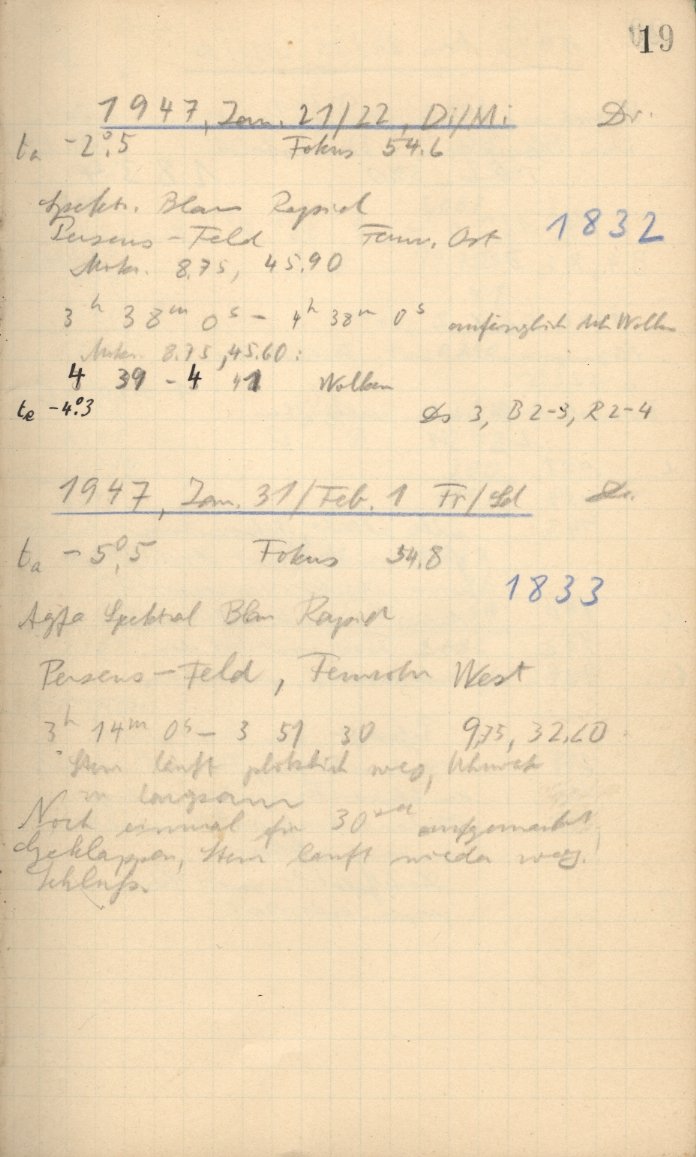 19
1947, Jan. 21/22, Di/Mi Dr.
ta -2°.5 Fokus 54.6
Spektr. Blau Rapid
Perseus-Feld Fernr. Ost 1832
Mikr. 8.75, 45.90
3h 38m 0s - 4h 38m 0s anfänglich Wolken
Mikr. 8.75, 45.60:
4 39 - 4 41 Wolken
te -4°.3 Ds 3, B 2-3, R 2-4
1947, Jan. 31/Feb. 1 Fr/Sd Dr.
ta -5°.5 Fokus 54.8
1833
Agfa Spektral Blau Rapid
Perseus-Feld, Fernrohr West
3h 14m 0s - 3 51 30 9,75, 32.60
Stern läuft plötzlich weg, Uhrwerk
zu langsam
Noch einmal für 30 aufgemacht,
Geklappen, Stern läuft wieder weg.
Schluß.